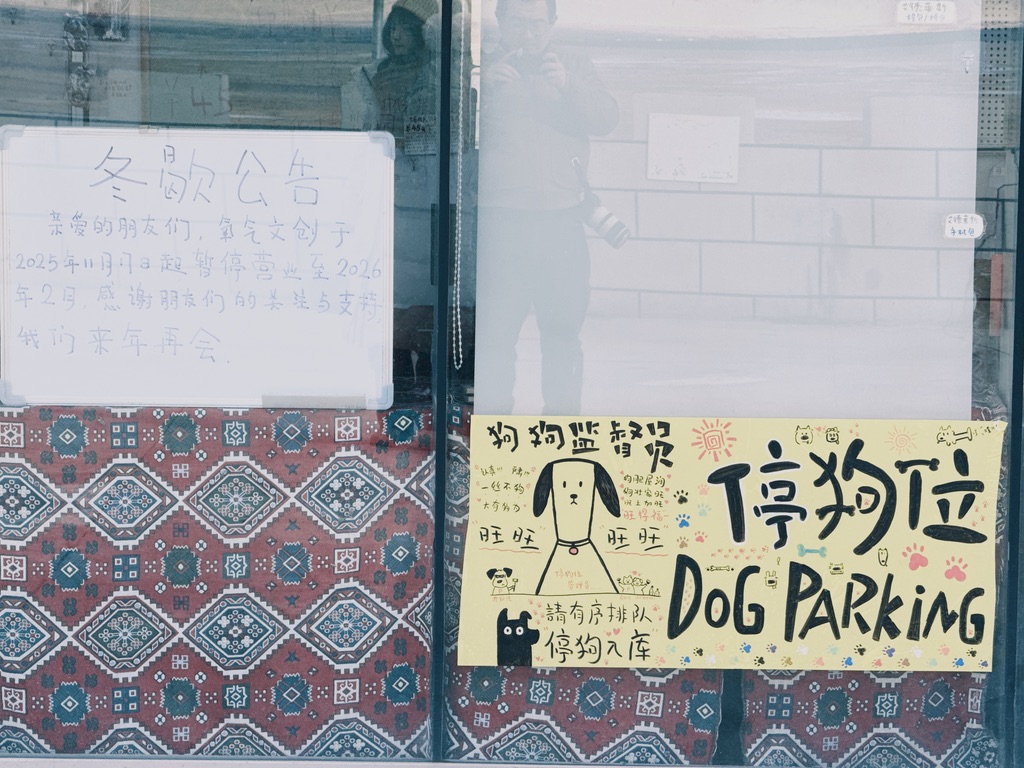 冬歇公告
亲爱的朋友们，氧气文创于
2025年11月17日起暂停营业至2026
年2月，感谢朋友们的关注与支持，
我们来年再会.
狗狗监督员
一丝不狗
旺旺
旺旺
旺得福
請有序排队
停狗入库
停狗位
DOG PARKiNG